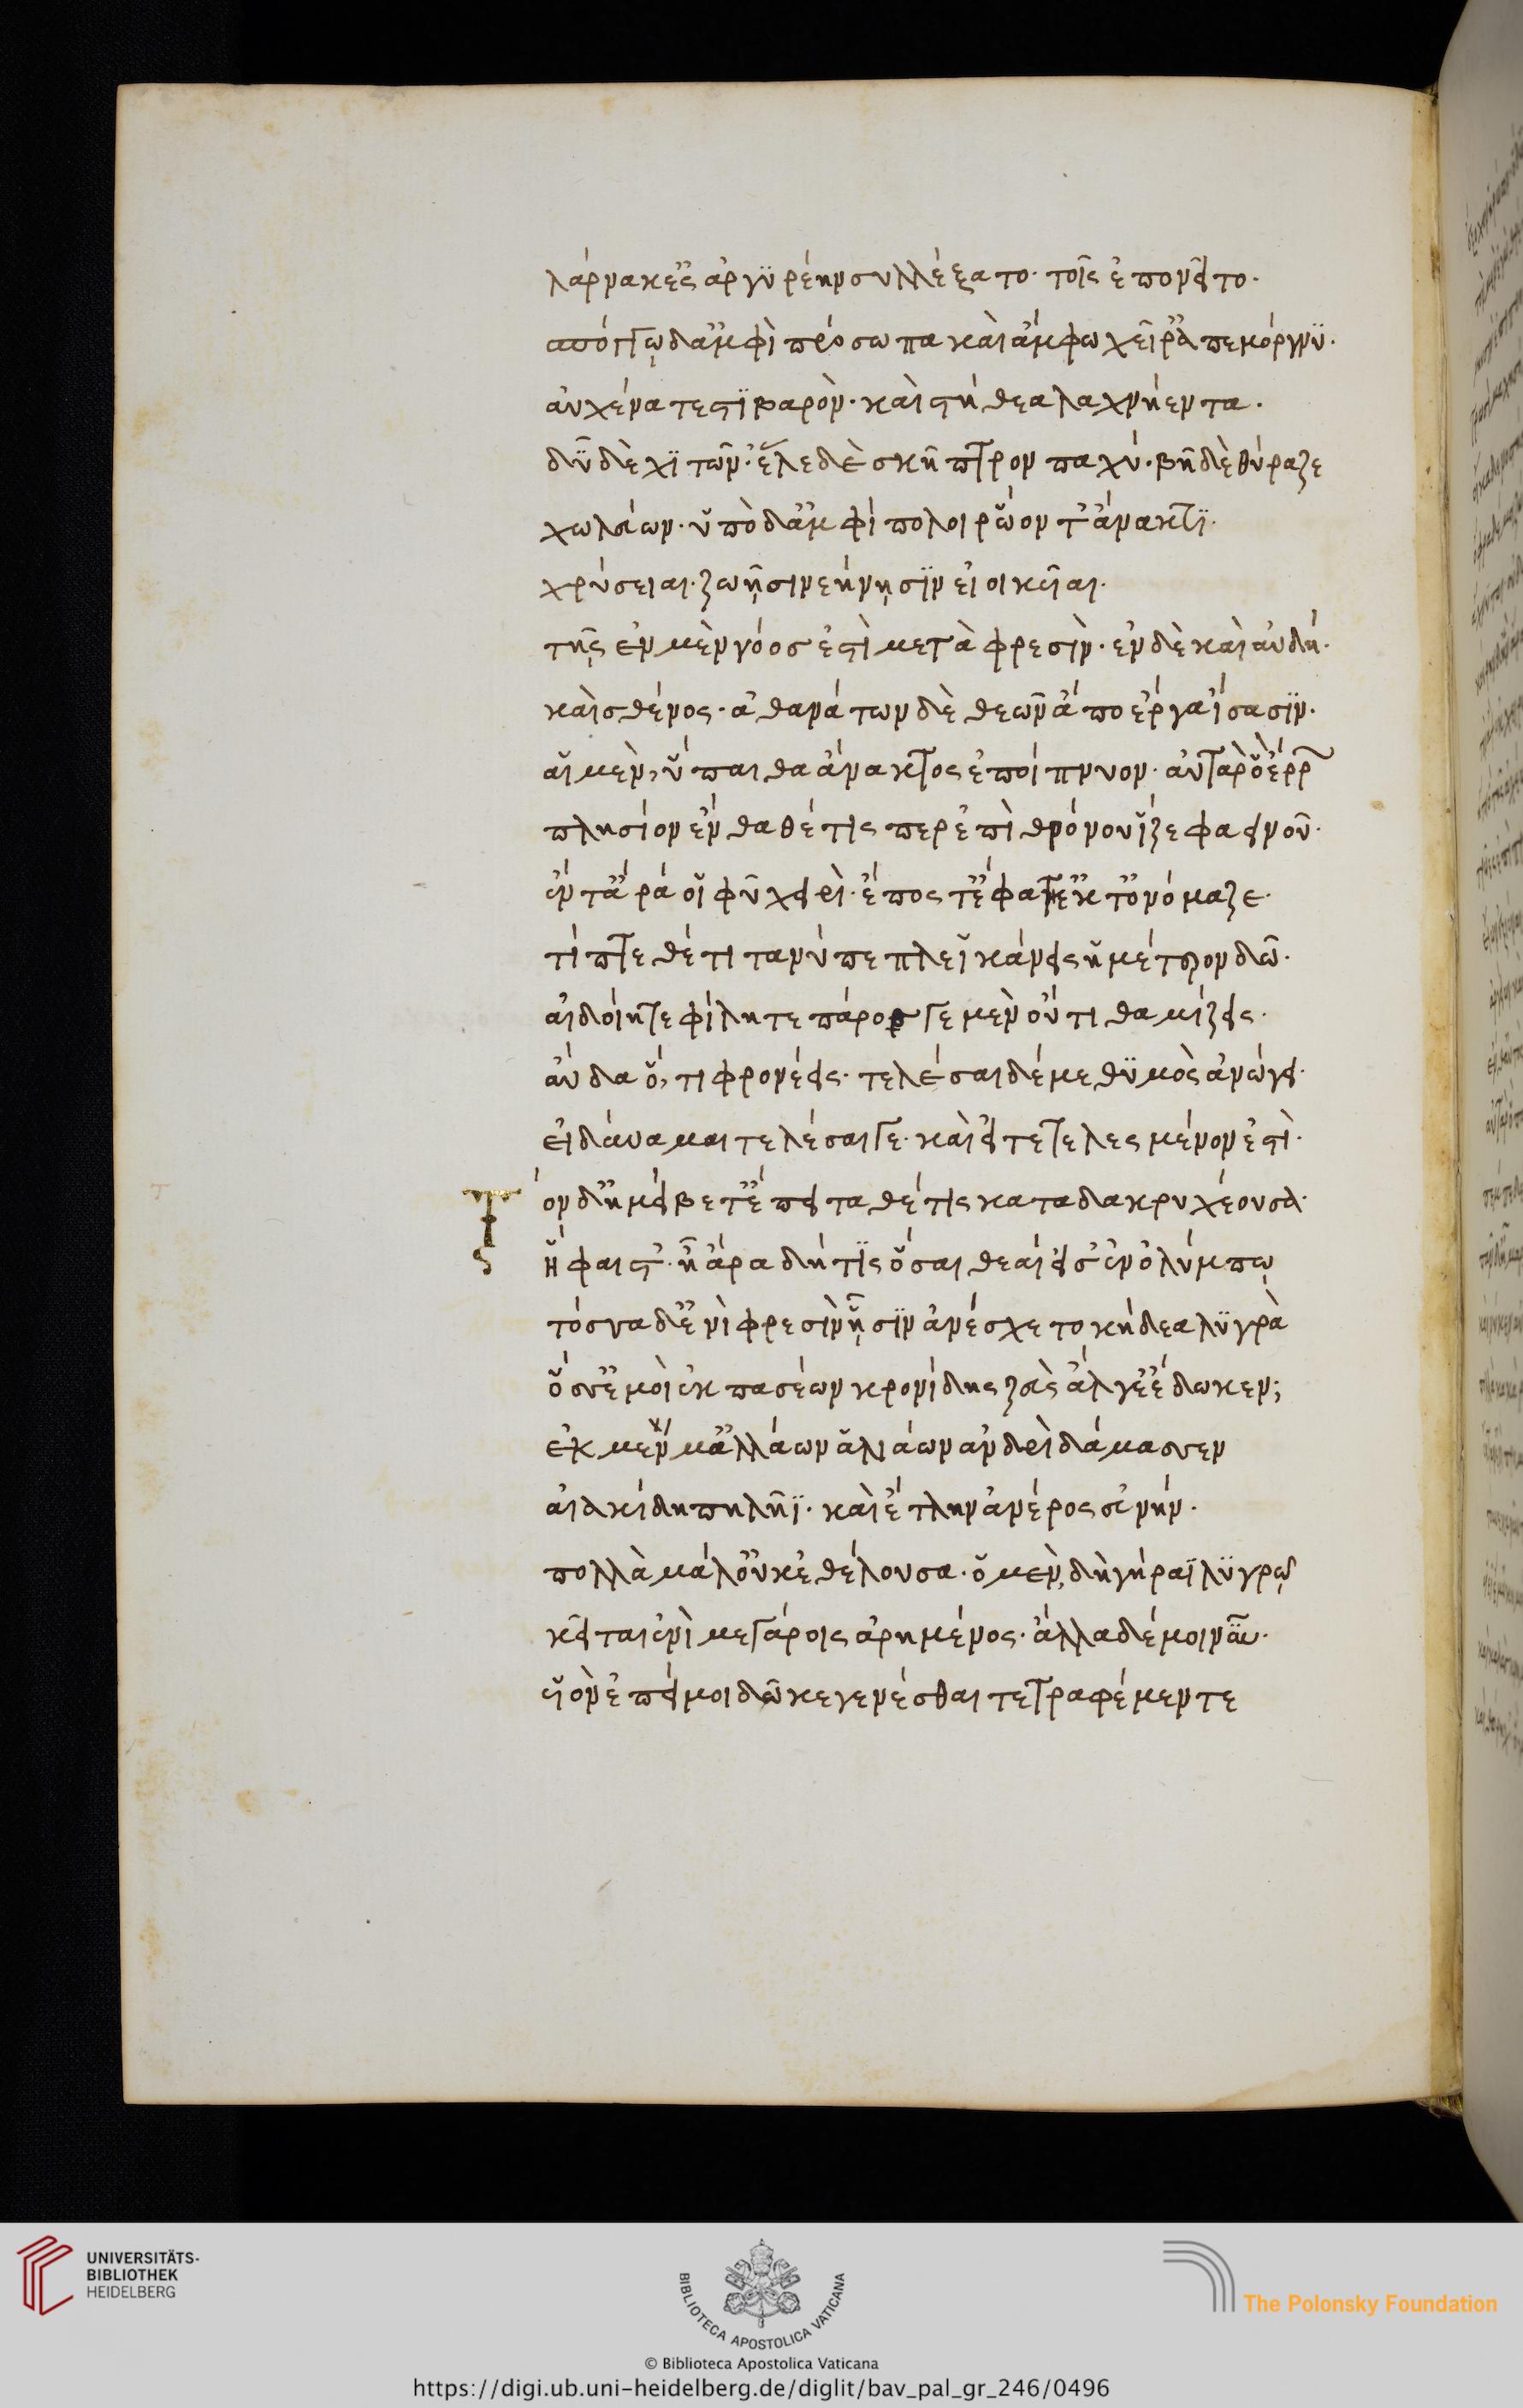 λάρνακ' ἐς ἀργυρέην συλλέξατο· τοῖς ἐπονεῖτο·
σπόγγῳ δ' ἀμφὶ πρόσωπα καὶ ἄμφω χεῖρ' ἀπεμόργνυ·
αὐχένα τε στιβαρὸν· καὶ στήθεα λαχνήεντα·
δῦ δὲ χιτῶν'· ἕλε δὲ σκῆπτρον παχύ· βῆ δὲ θύραζε
χωλεύων· ὑπὸ δ' ἀμφίπολοι ῥώοντ' ἄνακτι·
χρύσειαι· ζωῇσι νεήνῃσιν εἰοικεῖαι·
τῇς ἐν μὲν νόος ἐστὶ μετὰ φρεσὶν· ἐν δὲ καὶ αὐδή·
καὶ σθένος· ἀθανάτων δὲ θεῶν ἄπο ἔργα ἴσασιν·
αἳ μὲν, ὕπαιθα ἄνακτος ἐποίπνυον· αὐτὰρ ὃ ἔρρων
πλησίον ἔνθα θέτις περ ἐπὶ θρόνου ἵζε φαεινοῦ·
ἔν τ' ἄρα οἱ φῦ χειρὶ· ἔπος τ' ἔφατ' ἔκ τ' ὀνόμαζε·
τίπτε θέτι τανύπεπλε ἱκάνεις ἡμέτερον δῶ·
αἰδοίη τε φίλη τε πάρος γε μὲν οὔτι θαμίζεις·
αὔδα ὅ, τι φρονέεις· τελέσαι δέ με θυμὸς ἀνώγει·
εἰ δύναμαι τελέσαι γε· καὶ εἰ τετελεσμένον ἐστὶ·
Τὸν δ' ἠμείβετ' ἔπειτα θέτις κατα δακρυχέουσα·
ἥφαιστ'· ἦ ἄρα δή τις ὅσαι θεαί εἰσ' ἐν ὀλύμπῳ
τόσσα δ' ἐνὶ φρεσὶν ᾗσιν ἀνέσχετο κήδεα λυγρὰ
ὅσσ' ἐμοὶ ἐκ πασέων κρονίδης ζεὺς ἄλγε' ἔδωκεν;
ἐκ μέν μ' ἀλλάων ἁλιάων ἀνδρὶ δάμασσεν
αἰακίδῃ πηλῆϊ· καὶ ἔτλην ἀνέρος εὐνήν·
πολλὰ μάλ' οὐκ ἐθέλουσα· ὃ μὲν, δὴ γήραϊ λυγρῷ
κεῖται ἐνὶ μεγάροις ἀρημένος· ἄλλα δέ μοι νῦν·
υἱὸν ἐπεί μοι δῶκε γενέσθαι τε τραφέμεν τε
UNIVERSITÄTS-
BIBLIOTHEK
HEIDELBERG
BIBLIOTECA APOSTOLICA VATICANA
The Polonsky Foundation
© Biblioteca Apostolica Vaticana
https://digi.ub.uni-heidelberg.de/diglit/bav_pal_gr_246/0496